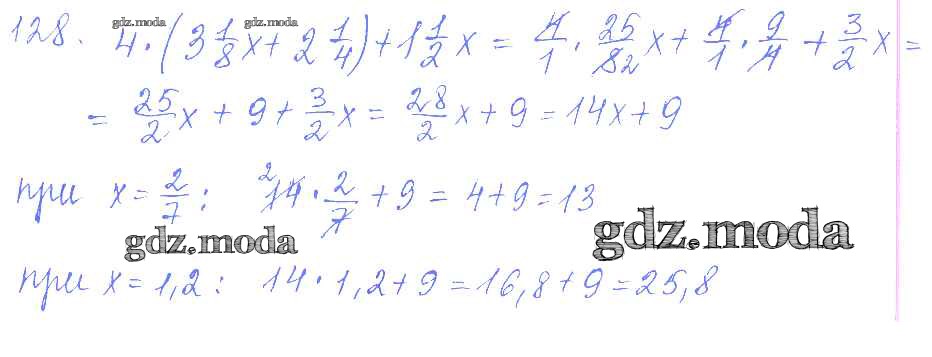 gdz.moda gdz.moda
128. 4·(3 1/8 x + 2 1/4) + 1 1/2 x = 4/1 · 25/8₂ x + 4/1 · 9/4 + 3/2 x =
= 25/2 x + 9 + 3/2 x = 28/2 x + 9 = 14x + 9
при x = 2/7 : ²14 · 2/7 + 9 = 4 + 9 = 13
gdz.moda gdz.moda
при x = 1,2 : 14 · 1,2 + 9 = 16,8 + 9 = 25,8